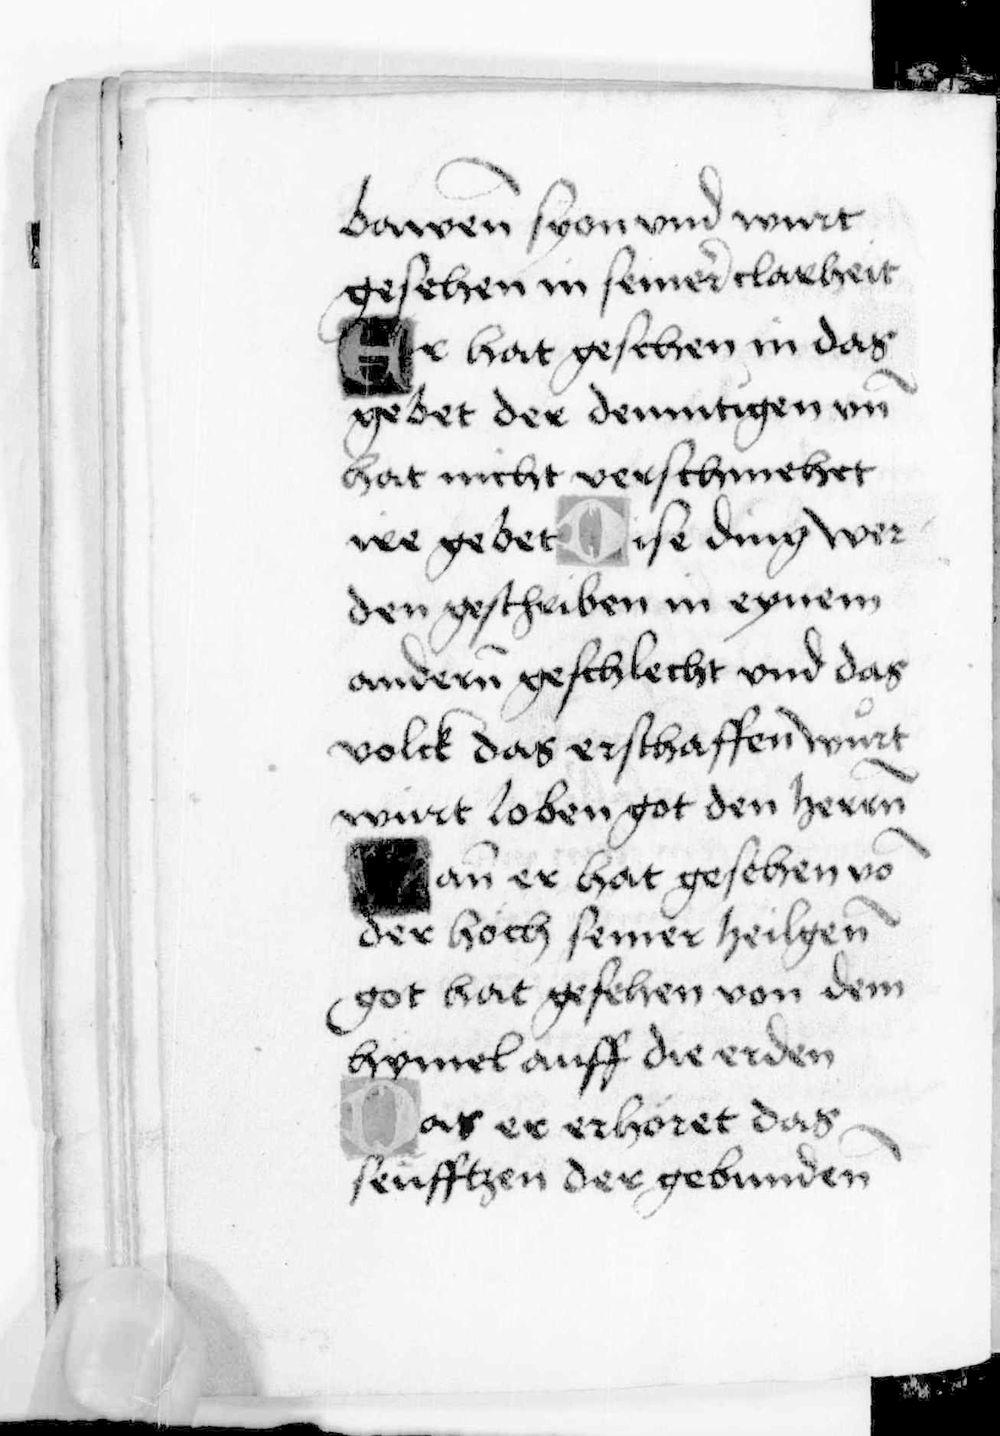 bawen̄ syon vnd wurt
gesehen in seiner̄ clarheit
Er hat gesehen in das
gebet der demutigen vn̄
hat nicht verschmehet
ire gebet Dise ding wer
den geschriben in eynem
andern̄ geschlecht vnd das
volck das erschaffen̄ wůrt
würt loben got den herrn̄
Wan̄ er hat gesehen vō
der höch seiner heilgen̄
got hat gesehen von dem
hymel auff die erden
Das er erhöret das
seüfftzen der gebunden̄